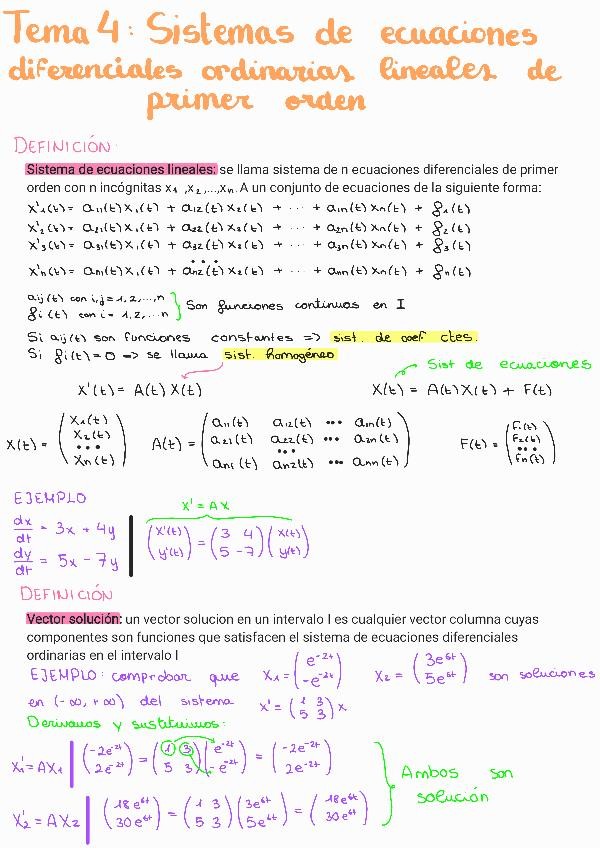 Tema 4: Sistemas de ecuaciones
diferenciales ordinarias lineales de
primer orden
DEFINICIÓN:
Sistema de ecuaciones lineales: se llama sistema de n ecuaciones diferenciales de primer
orden con n incógnitas x₁ ,x₂,...,xₙ. A un conjunto de ecuaciones de la siguiente forma:
x'₁(t)= a₁₁(t)x₁(t) + a₁₂(t)x₂(t) + ... + a₁ₙ(t)xₙ(t) + f₁(t)
x'₂(t)= a₂₁(t)x₁(t) + a₂₂(t)x₂(t) + ... + a₂ₙ(t)xₙ(t) + f₂(t)
x'₃(t)= a₃₁(t)x₁(t) + a₃₂(t)x₂(t) + ... + a₃ₙ(t)xₙ(t) + f₃(t)
...
x'ₙ(t)= aₙ₁(t)x₁(t) + aₙ₂(t)x₂(t) + ... + aₙₙ(t)xₙ(t) + fₙ(t)
aᵢⱼ(t) con i,j = 1,2,...,n
fᵢ(t) con i= 1,2,...n } Son funciones continuas en I
Si aᵢⱼ(t) son funciones constantes => sist. de coef ctes.
Si fᵢ(t)=0 => se llama sist. homogéneo
Sist de ecuaciones
X'(t) = A(t)X(t) X(t) = A(t)X(t) + F(t)
X(t) = (x₁(t) x₂(t) ... xₙ(t)) A(t) = (a₁₁(t) a₁₂(t) ... a₁ₙ(t) a₂₁(t) a₂₂(t) ... a₂ₙ(t) ... aₙ₁(t) aₙ₂(t) ... aₙₙ(t)) F(t) = (f₁(t) f₂(t) ... fₙ(t))
EJEMPLO
X' = AX
dx/dt = 3x + 4y
dy/dt = 5x - 7y
(x'(t) y'(t)) = (3 4 5 -7)(x(t) y(t))
DEFINICIÓN
Vector solución: un vector solucion en un intervalo I es cualquier vector columna cuyas
componentes son funciones que satisfacen el sistema de ecuaciones diferenciales
ordinarias en el intervalo I
EJEMPLO: comprobar que X₁= (e⁻²ᵗ -e⁻²ᵗ) X₂ = (3e⁶ᵗ 5e⁶ᵗ) son soluciones
en (-∞, +∞) del sistema X' = (1 3 5 3) X
Derivamos y sustituimos:
X₁' = AX₁ | (-2e⁻²ᵗ 2e⁻²ᵗ) = (1 3 5 3)(e⁻²ᵗ -e⁻²ᵗ) = (-2e⁻²ᵗ 2e⁻²ᵗ)
X₂' = AX₂ | (18e⁶ᵗ 30e⁶ᵗ) = (1 3 5 3)(3e⁶ᵗ 5e⁶ᵗ) = (18e⁶ᵗ 30e⁶ᵗ)
Ambos son
solución